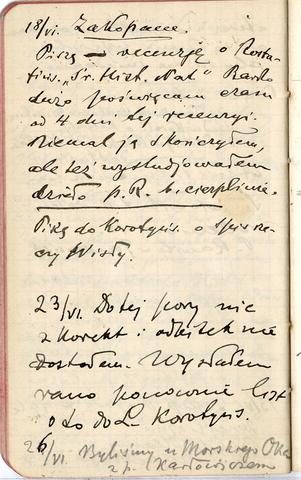 18/VI. Zakopane.
Piszę recenzję o Rosta-
fińs. „Śr. Hist. Nat" Bardzo
dużo poświęcam czasu
od 4 dni tej recenzyi.
Niemal ją skończyłem,
ale też wystudjowałem
dzieło p. R. b. cierpliwie.
Piszę do Korotyńs. o spis rze-
czy Wisły.
23/VI. Do tej pory nic
z korekt i odbitek nie
dostałem. Wysłałem
rano ponownie list
o to do L. Korotyńs.
26/VI. Byliśmy u Morskiego Oka
z p. Karłowiczem